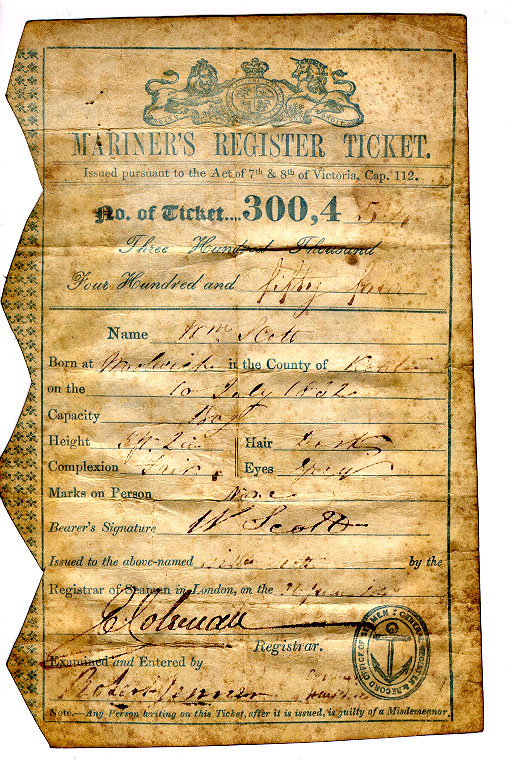 MARINER'S REGISTER TICKET.
Issued pursuant to the Act of 7th & 8th of Victoria, Cap. 112.
No. of Ticket....300,4 54
Three Hundred Thousand
Four Hundred and fifty four
Name Wm Scott
Born at Woolwich in the County of Kent
on the 10 July 1832
Capacity Boy
Height 5ft 2in Hair Dark
Complexion Fair Eyes Grey
Marks on Person None
Bearer's Signature W Scott
Issued to the above-named by the
Registrar of Seamen in London, on the
Registrar.
Examined and Entered by
Robert Jenner
GENERAL REGISTER & RECORD OFFICE OF SEAMEN
Note.—Any Person writing on this Ticket, after it is issued, is guilty of a Misdemeanor.